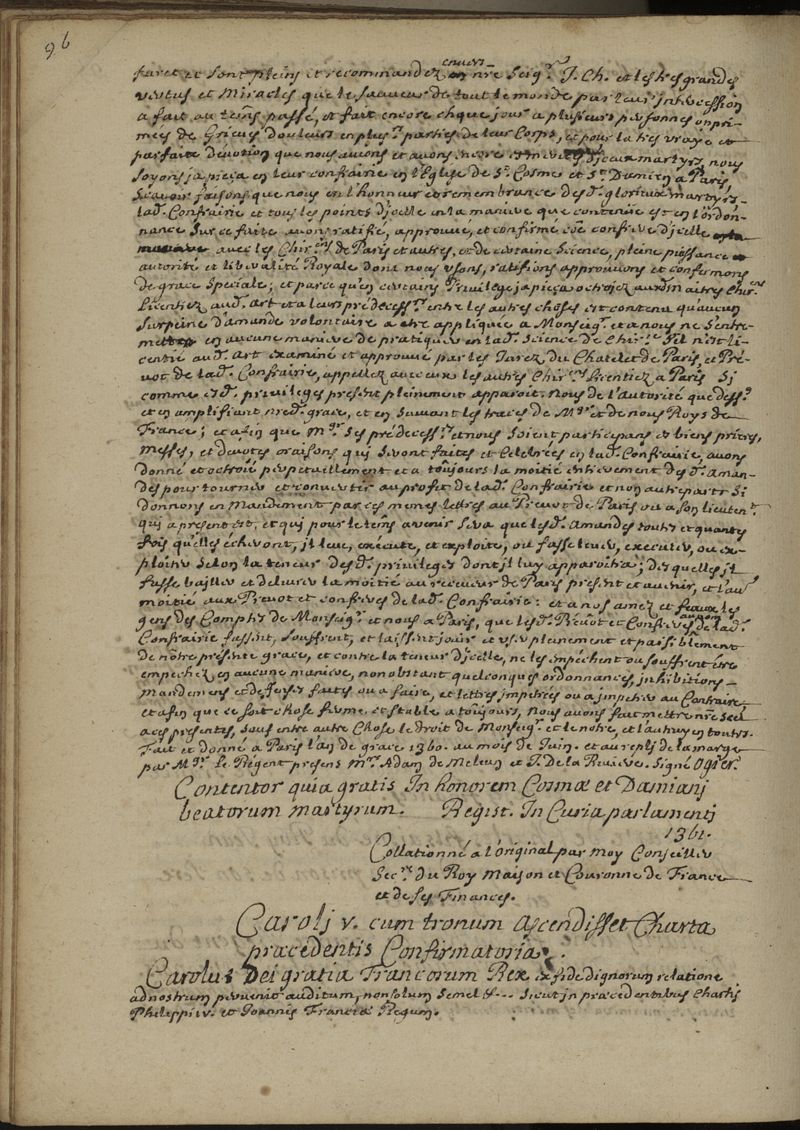 96
furent et sont pleins et recommandez envers nre Seigr J. Ch. et les tres grandes
vertus et Miracles que le sauveur de tout le monde par leur intercession
a fait au tems passé, et fait encore chque jour a plusieurs personnes oppri-
mées de Griefs douleurs en plusrs parties de leur Corps, et pour la tres vraye et
parfaite devotion que nous avions et avons encore diceux martyrs, nous
soyons japieça en leur confrairie en l'Eglise de St. Cosme et St. Damien a Paris,
Sçavoir faisons que nous en l'honneur et remembrance desd. glorieux martyrs
lad. Confrairie et tous les points d'jcelle en la maniere que contenüe est en l'ordon-
nance sur ce faite avons ratifié, approuvé, et confirmé
avec les Chirns de Paris et autres, et de certaine Science, pleine puissance et
autorité et liberalité Royale dont nous usons, ratifions approuvons et confirmons
de grace speciale; et parce qu'en certains Privileges japieça octrojez auxd. maitres Chirns
Licentiez aud. Art et a leurs predecessrs entre les autres choses est contenu qu'aucun
sur peine d'amande volontaire a etre appliquée a Monseigr. et a nous ne s'entre-
mette en aucune maniere de pratiquer en lad. Science de Chirie s'il n'est li-
centié aud. Art examiné et approuvé par les Jurez du Chatelet de Paris, et Pre-
vot de lad. Confrairie, appellez avec eux les autres Chirns licentiez a Paris Si
comme esd. privileges present pleinement apparoit. Nous de l'autorité que dessr
et en amplifiant nred. grace, et en suivant les traces de Mgr et de nous Roys de
France; et afin que mgr. ses predecessrs et nous soient participans es biens prieres,
messes, et devotes oraisons qui seront faites et celebrées en lad. Confrairie, avons
donné et octroié perpetuellement et a toujours la moitié entierement desd. aman-
des pour tourner et convertir au profit de lad. Confrairie et non autre part si
donnons en Mandement par ces memes lettres au Prevot de Paris ou a son lieutent
qui a present est, et qui pour le tems avenir sera que lesd. Amandes toutes et quantes
fois qu'elles écheront, jl leve, exécute, et exploite, ou fasse lever, executer, ou ex-
ploiter selon la teneur desd. privileges dont jl luy apparoitra; desquelles jl
fasse bailler et delivrer la moitié au receveur de Paris present et avenir, et l'autre
moitié aux Prevot et confreres de lad. Confrairie: et a nos amez et feaux les
gens des Compts de Monseigr. et nous a Paris, que lesd. Prevot et Confreres de lad.
Confrairie fassent, souffrent, et laissent jouir et user pleinement et paisiblement
de nôtre presente grace, et contre la teneur d'jcelle, ne les empéchent ou souffrent étre
empechez en aucune maniere, nonobstant quelconques ordonnances, jnhibitions
mandemens et defenses faits ou a faire, et lettres jmpetrées ou a jmpetrer au Contraire
et afin que ce soit chose ferme et stable a toujours, nous avons fait mettre nre Seel
a ces presentes, sauf entre autre chose le droit de Monseigr. et le notre, et l'autruy en toutes.
Fait et donné a Paris l'an de grace 1360. au mois de Juin. et au reply de la marge
par Mgr. Le Regent presens Mrs. Adam de Melun et J. De la Riviere. Signé Ogier.
Contentor quia gratis In honorem Cosmæ et Damianj
beatorum martyrum. Regist. In Curia parlamentj
1361.
Collationné a l'original par moy Conseiller
Secre. du Roy Maison et Couronne de France
et de ses Finances.
Carolj v. cum tronum ascendisset Charta
præcedentis Confirmatoria.
Carolus Dei gratia Francorum Rex ex fide dignorum relatione
ad nostrum pervenit auditum, non solum semel &... Sicut jn præcedentibus Chartis
Philippi iv. et Joannis Franciæ Regum.